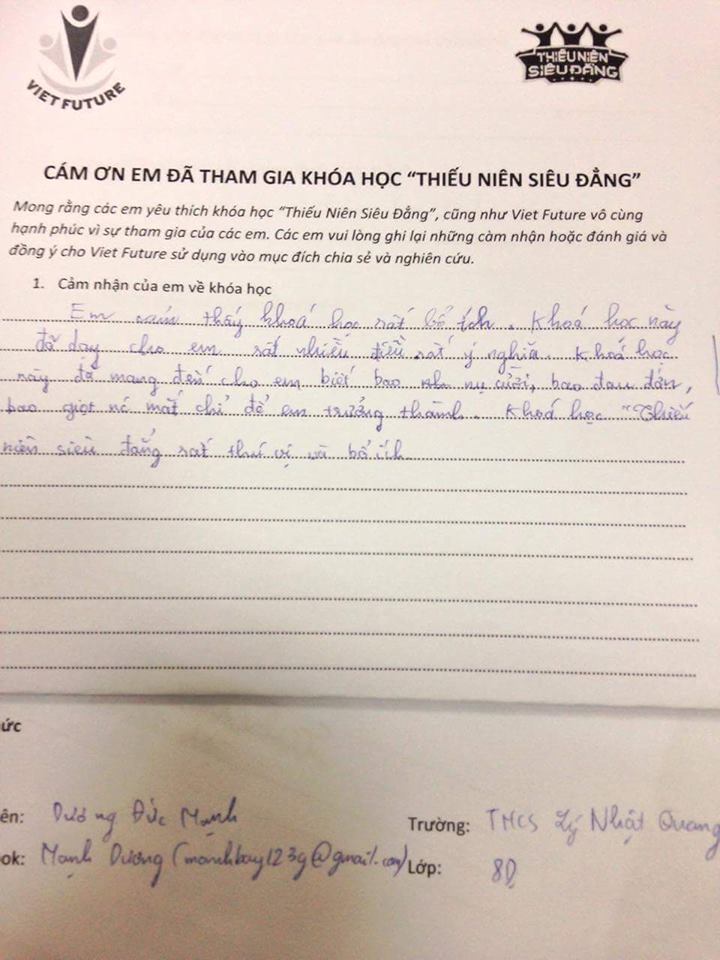 VIET FUTURE
THIẾU NIÊN
SIÊU ĐẲNG
CÁM ƠN EM ĐÃ THAM GIA KHÓA HỌC “THIẾU NIÊN SIÊU ĐẲNG”
Mong rằng các em yêu thích khóa học “Thiếu Niên Siêu Đẳng”, cũng như Viet Future vô cùng
hạnh phúc vì sự tham gia của các em. Các em vui lòng ghi lại những càm nhận hoặc đánh giá và
đồng ý cho Viet Future sử dụng vào mục đích chia sẻ và nghiên cứu.
1. Cảm nhận của em về khóa học
Em thấy khoá học rất bổ ích. Khoá học này
đã dạy cho em rất nhiều điều rất ý nghĩa. Khoá học
này đã mang đến cho em biết bao nụ cười, bao đau đớn,
bao giọt nc mắt chỉ để em trưởng thành. Khoá học "Thiếu
niên siêu đẳng rất thú vị và bổ ích.
ức
ên: Dương Đức Mạnh
Trường: THCS Lý Nhật Quang
ok: Mạnh Dương (manhbay123g@gmail.com)
Lớp: 8D